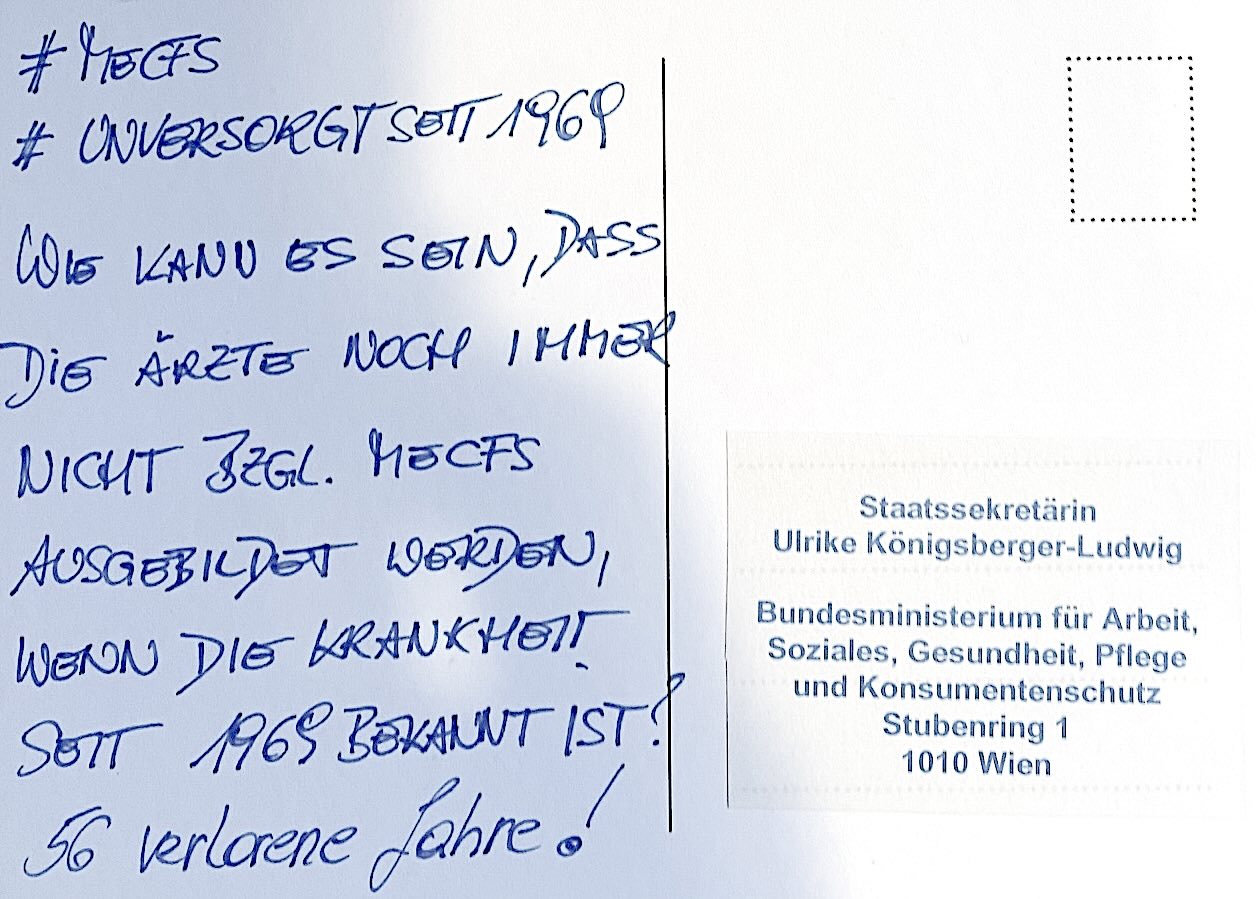 # MECFS
# UNVERSORGTSEIT1969
WIE KANN ES SEIN, DASS
DIE ÄRZTE NOCH IMMER
NICHT BZGL. MECFS
AUSGEBILDET WERDEN,
WENN DIE KRANKHEIT
SEIT 1969 BEKANNT IST?
56 verlorene Jahre!
Staatssekretärin
Ulrike Königsberger-Ludwig
Bundesministerium für Arbeit,
Soziales, Gesundheit, Pflege
und Konsumentenschutz
Stubenring 1
1010 Wien